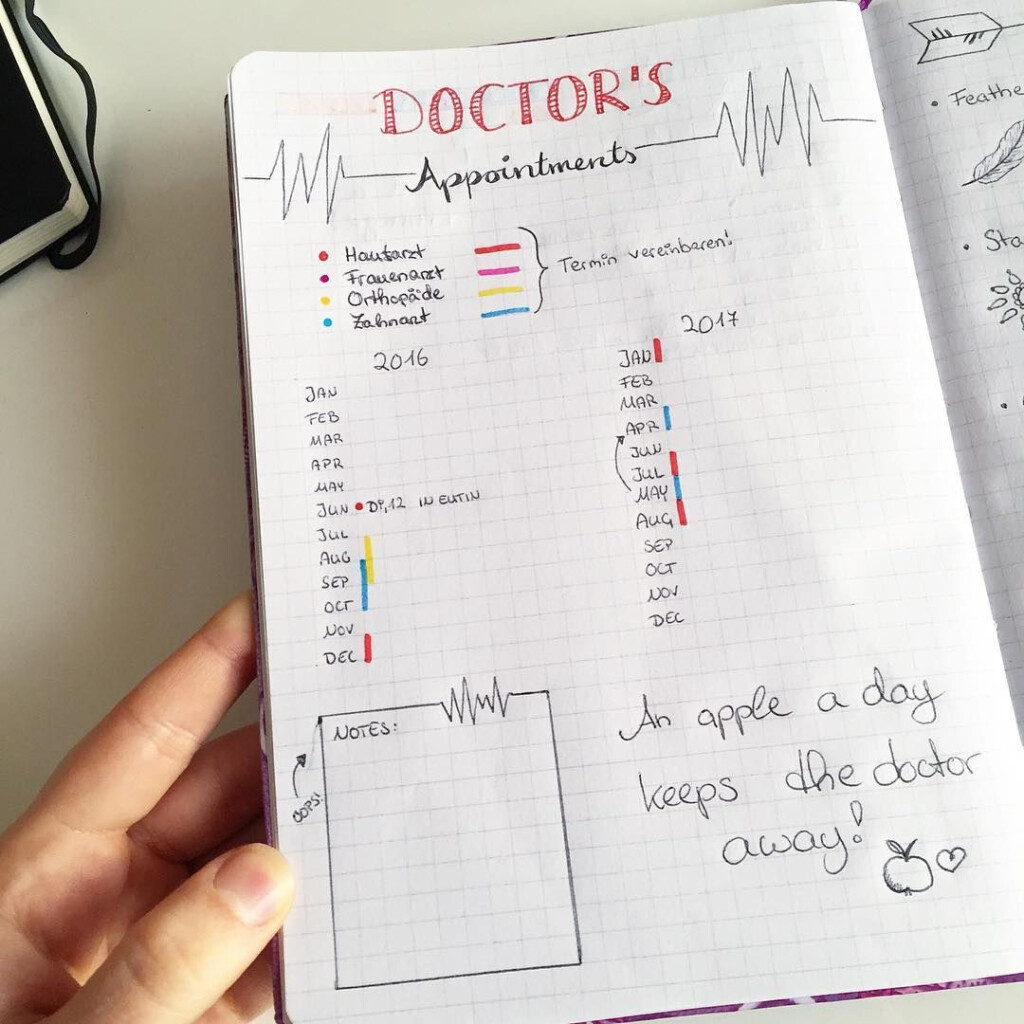 DOCTOR'S
Appointments
Hautarzt
Frauenarzt
Orthopäde
Zahnarzt
Termin vereinbaren!
2016
JAN
FEB
MAR
APR
MAY
JUN Di, 12 IN EUTIN
JUL
AUG
SEP
OCT
NOV
DEC
2017
JAN
FEB
MAR
APR
JUN
JUL
MAY
AUG
SEP
OCT
NOV
DEC
NOTES:
OOPS!
An apple a day
keeps the doctor
away!